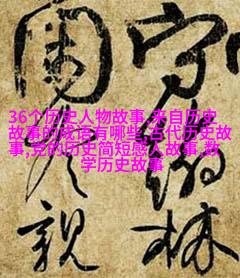 36个历史人物故事,来自历史
故事的成语有哪些,古代历史故
事,党的历史简短感人故事,数
学历史故事
守林
親